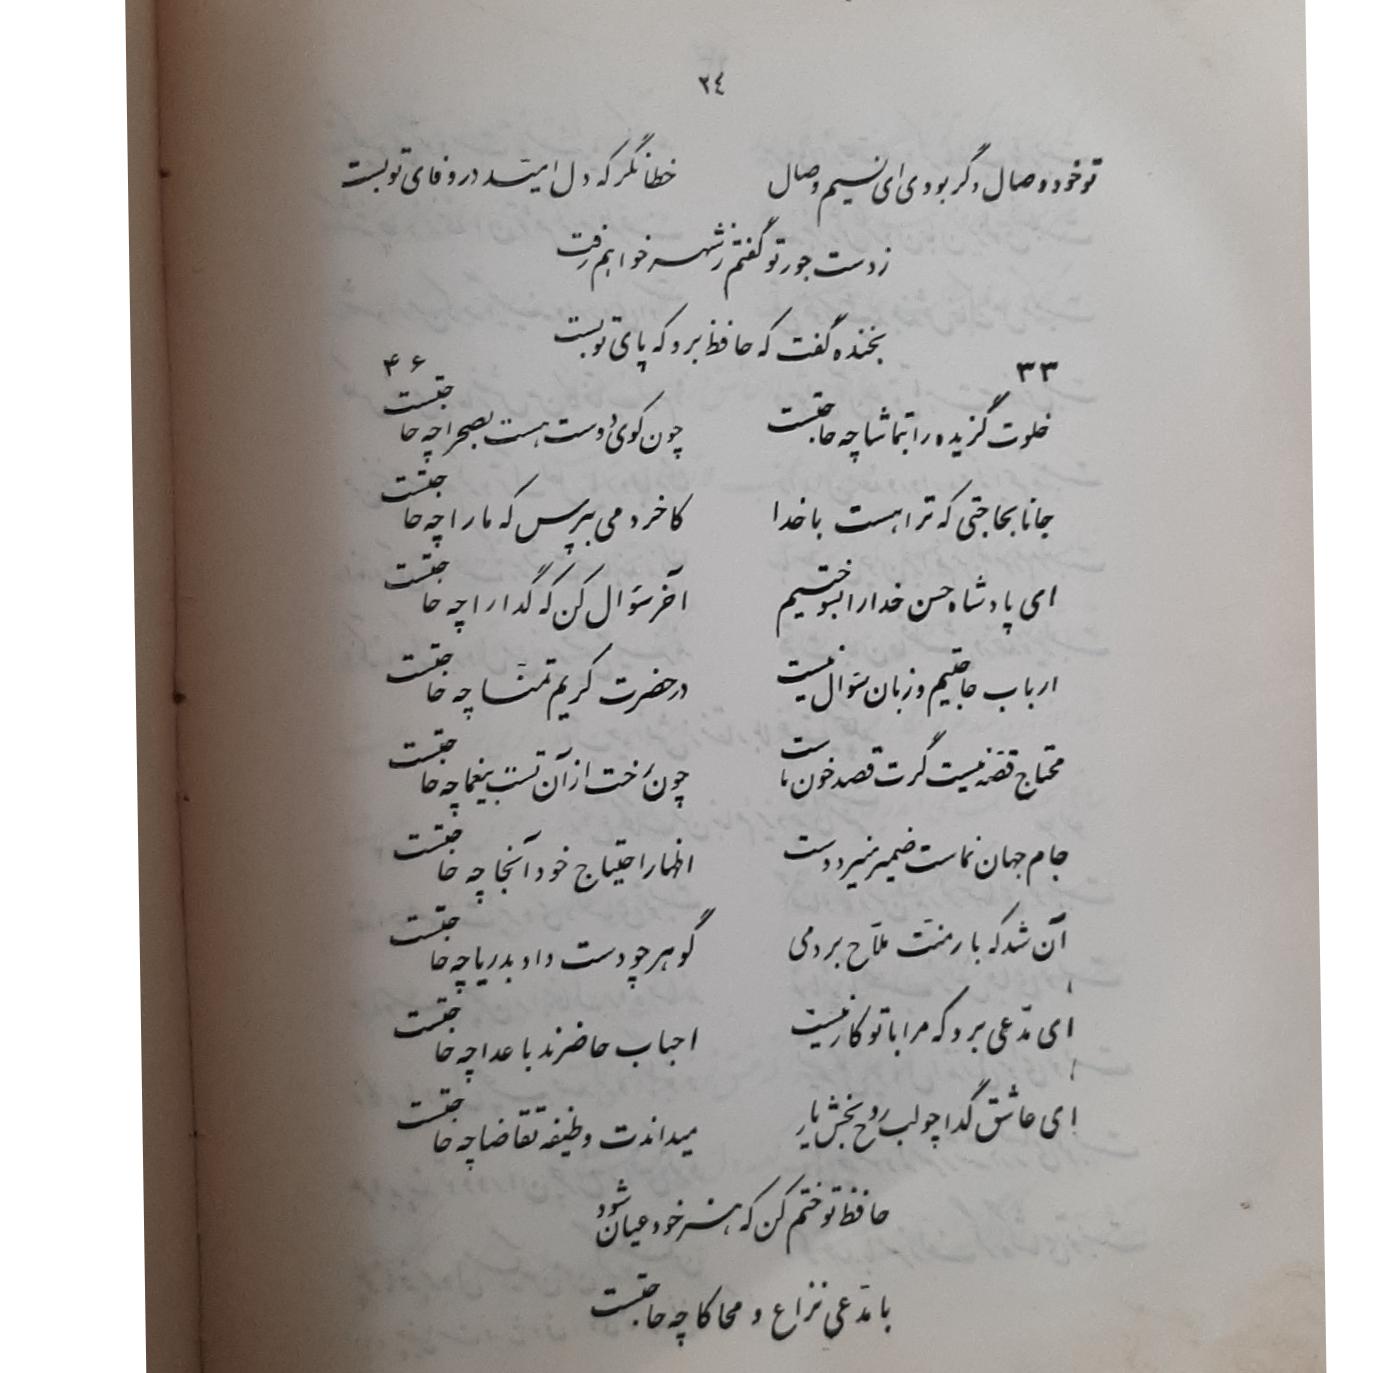 ۲٤
تو خود وصال دگر بودی ای نسیم وصال خطا نگر که دل امید در وفای تو بست
ز دست جور تو گفتم ز شهر خواهم رفت
بخنده گفت که حافظ برو که پای تو بست
۳۳ ۴۶
خلوت گزیده را بتماشا چه حاجتست چون کوی دوست هست بصحرا چه حاجتست
جانا بحاجتی که ترا هست با خدا کاخر دمی بپرس که ما را چه حاجتست
ای پادشاه حسن خدا را بسوختیم آخر سؤال کن که گدا را چه حاجتست
ارباب حاجتیم و زبان سؤال نیست در حضرت کریم تمنا چه حاجتست
محتاج قصه نیست گرت قصد خون ماست چون رخت از آن تست بیغما چه حاجتست
جام جهان نماست ضمیر منیر دوست اظهار احتیاج خود آنجا چه حاجتست
آن شد که بار منت ملاح بردمی گوهر چو دست داد بدریا چه حاجتست
ای مدّعی برو که مرا با تو کار نیست احباب حاضرند باعدا چه حاجتست
ای عاشق گدا چو لب روح بخش یار میداندت وظیفه تقاضا چه حاجتست
حافظ تو ختم کن که هنر خود عیان شود
با مدّعی نزاع و محاکا چه حاجتست